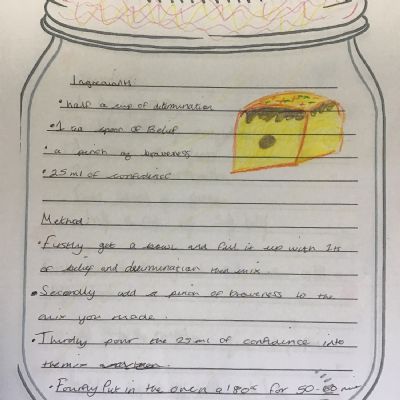 Ingredients:
• half a cup of determination
• 1 tea spoon of Belief
• a pinch of braveness
• 25 ml of confidence
Method:
• Firstly get a bowl and fill it up with
of belief and determination then mix.
• Secondly add a pinch of braveness to the
mix you made.
• Thirdly pour the 25 ml of confidence into
the mix
• Fourthly Put in the oven a 180c for 50-60 min